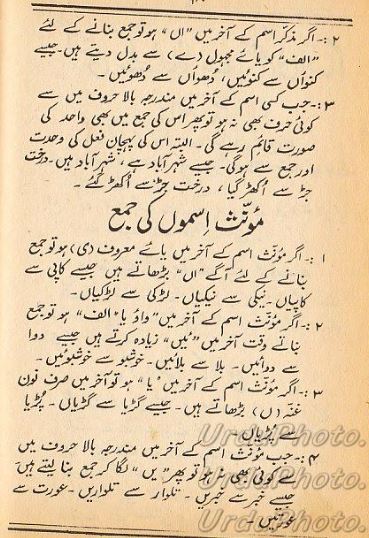 ۲ :- اگر مذکر اسم کے آخر میں "اں" ہو تو جمع بنانے کے لئے
"الف" کو یائے مجہول (ے) سے بدل دیتے ہیں۔ جیسے
کنواں سے کنوئیں، دھواں سے دُھوئیں۔
۳ :- جب کسی اسم کے آخر میں مندرجہ بالا حروف میں سے
کوئی حرف بھی نہ ہو تو پھر اس کی جمع میں بھی واحد کی
صورت قائم رہے گی۔ البتہ اس کی پہچان فعل کی وحدت
اور جمع سے ہوگی۔ جیسے شہر آباد ہے، شہر آباد ہیں۔ درخت
جڑ سے اُکھڑ گیا، درخت جڑ سے اُکھڑ گئے۔
مؤنث اِسموں کی جمع
۱ :- اگر مؤنث اسم کے آخر میں یائے معروف (ی) ہو تو جمع
بنانے کے لئے آگے "اں" بڑھاتے ہیں جیسے کاپی سے
کاپیاں۔ نیکی سے نیکیاں۔ لڑکی سے لڑکیاں۔
۲ :- اگر مؤنث اسم کے آخر میں "واؤ یا الف" ہو تو جمع
بناتے وقت آخر میں "ئیں" زیادہ کرتے ہیں جیسے دوا
سے دوائیں۔ بلا سے بلائیں۔ خوشبو سے خوشبوئیں۔
۳ :- اگر مؤنث اسم کے آخر میں "یا" ہو تو آخر میں صرف نون
غنّہ (ں) بڑھاتے ہیں۔ جیسے گڑیا سے گڑیاں۔ پُڑیا
سے پُڑیاں
۴ :- جب مؤنث اسم کے آخر میں مندرجہ بالا حروف میں
سے کوئی بھی نہ ہو تو پھر "یں" لگا کر جمع بنا لیتے ہیں
جیسے خبر سے خبریں۔ تلوار سے تلواریں۔ عورت سے
عورتیں۔
UrduPhoto.
UrduPhoto.
UrduPhoto.